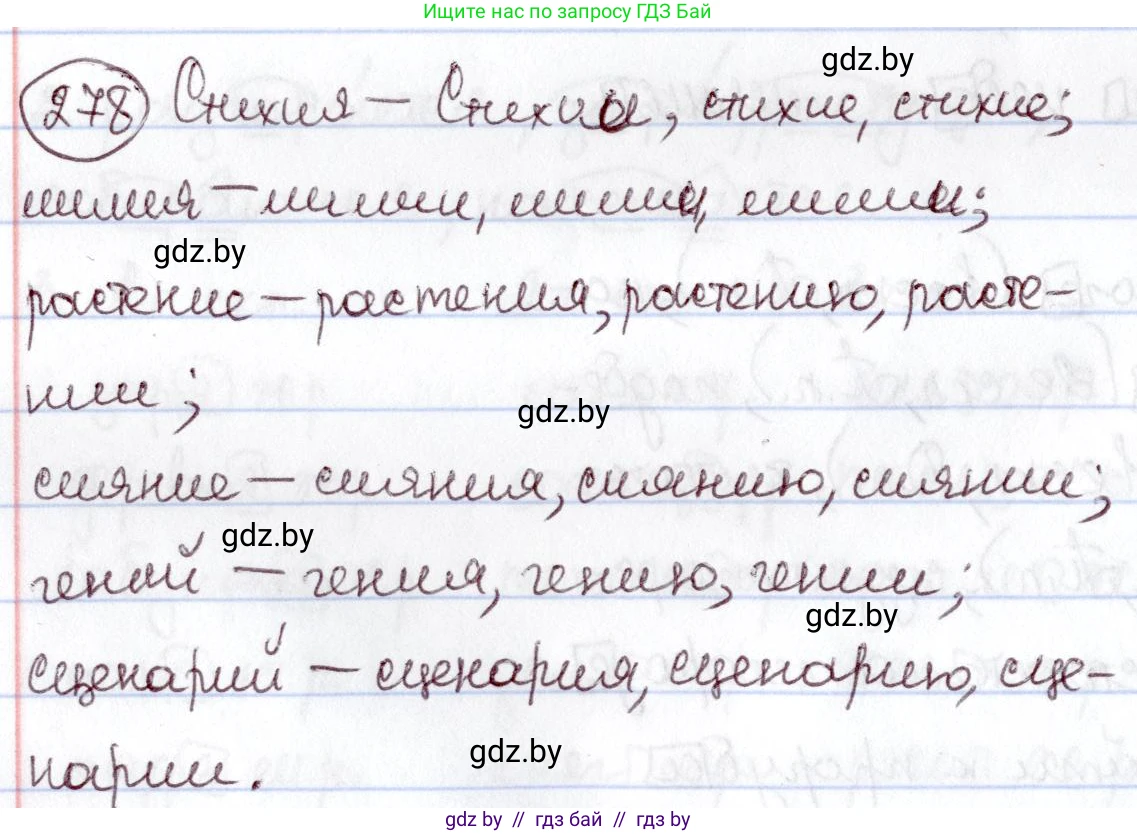 Ищите нас по запросу ГДЗ Бай
gdz.by
278 Стихия — Стихии, стихие, стихие;
лилия — лилии, лилии, лилии;
gdz.by
растение — растения, растению, расте-
нии;
gdz.by
сияние — сияния, сиянию, сиянии;
gdz.by
гений — гения, гению, гении;
gdz.by
сценарий — сценария, сценарию, сце-
нарии.
gdz.by
gdz by // гдз бай // гдз by